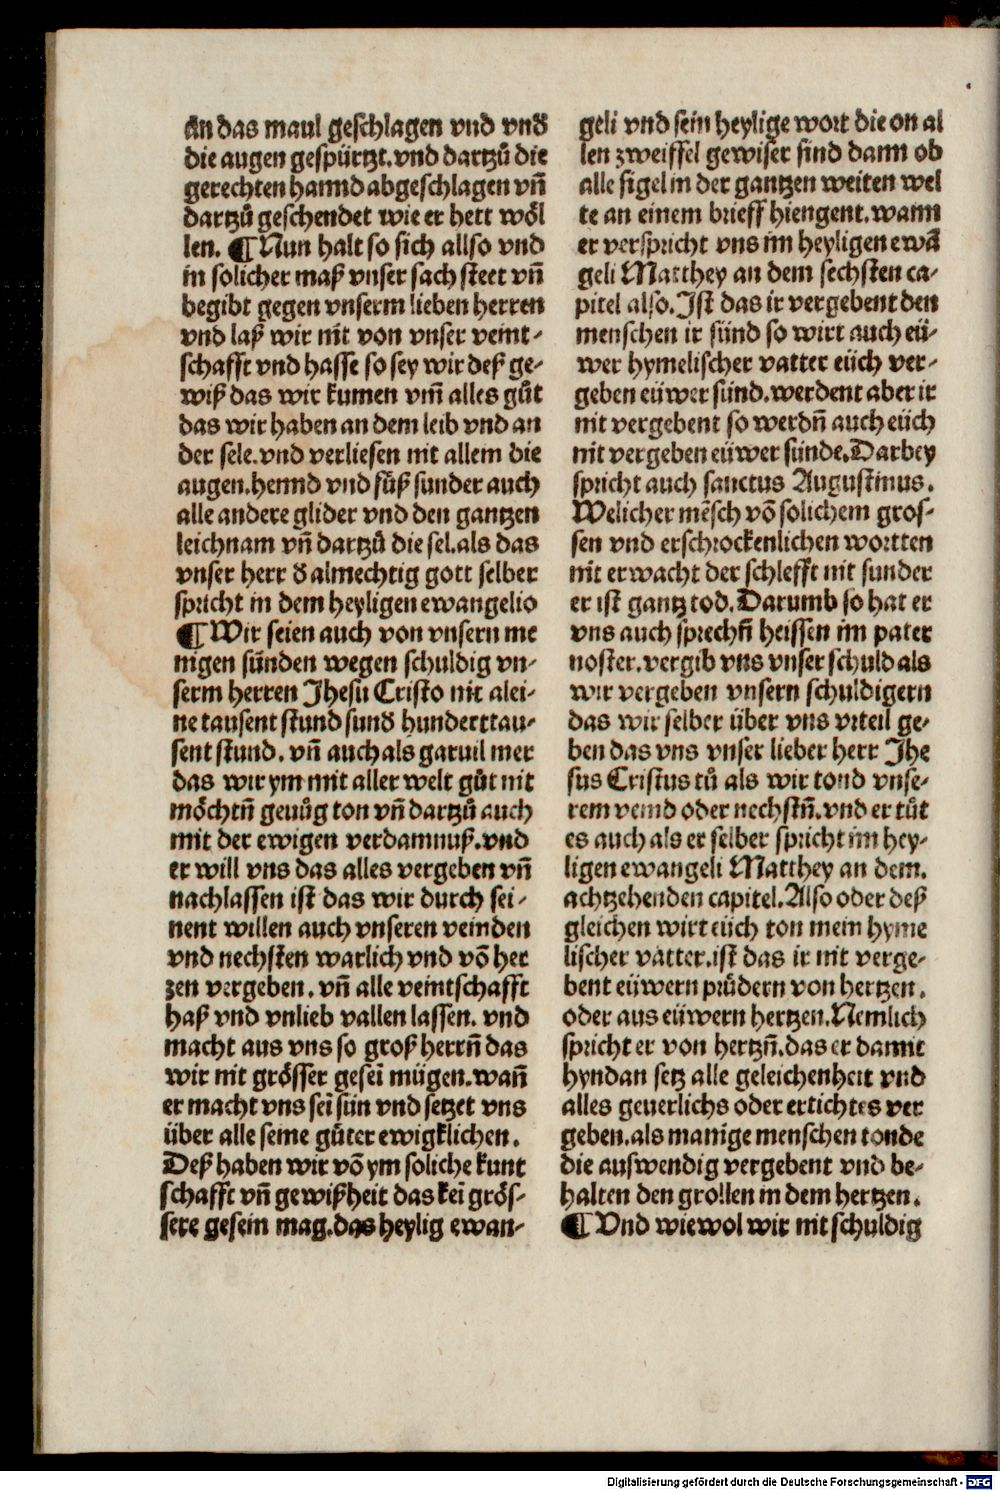 an das maul geschlagen vnd vnd
die augen gespürtzt.vnd dartzů die
gerechten hannd abgeschlagen vñ
dartzů geschendet wie er hett wöl
len. ¶ Nun halt so sich allso vnd
in solicher maß vnser sach steet vñ
begibt gegen vnserm lieben herren
vnd laß wir nit von vnser veint-
schafft vnd hasse so sey wir deß ge-
wiß das wir kumen vm̃ alles gůt
das wir haben an dem leib vnd an
der sele.vnd verliesen mit allem die
augen.hennd vnd fůß sunder auch
alle andere glider vnd den gantzen
leichnam vñ dartzů die sel.als das
vnser herr d̕ almechtig gott selber
spricht in dem heyligen ewangelio
¶ Wir seien auch von vnsern me
nigen sünden wegen schuldig vn-
serm herren Jhesu Cristo nit alei-
ne tausent stund sund̕ hunderttau-
sent stund. vñ auch als gar uil mer
das wir ym mit aller welt gůt nit
möchtñ genůg ton vñ dartzů auch
mit der ewigen verdamnuß.vnd
er will vns das alles vergeben vñ
nachlassen ist das wir durch sei-
nent willen auch vnseren veinden
vnd nechsten warlich vnd võ her
zen vergeben. vñ alle veintschafft
haß vnd vnlieb vallen lassen. vnd
macht aus vns so groß herrñ das
wir nit grösser geseĩ mügen.wañ
er macht vns seĩ sün vnd setzet vns
über alle seine gůter ewigklichen.
Deß haben wir võ ym soliche kunt
schafft vñ gewißheit das keĩ grös-
sere gesein mag.das heylig ewan-
geli vnd sein heylige wort die on al
len zweiffel gewiser sind dann ob
alle sigel in der gantzen weiten wel
te an einem brieff hiengent.wann
er verspricht vns im heyligen ewã
geli Matthey an dem sechsten ca-
pitel also.Jst das ir vergebent den
menschen ir sünd so wirt auch eü-
wer hymelischer vatter eüch ver-
geben eüwer sünd.werdent aber ir
nit vergebent so werdñ auch eüch
nit vergeben eüwer sünde.Darbey
spricht auch sanctus Augustinus.
Welicher mẽsch võ solichem gros-
sen vnd erschrockenlichen wortten
nit erwacht der schlefft nit sunder
er ist gantz tod.Darumb so hat er
vns auch sprechñ heissen im pater
noster.vergib vns vnser schuld als
wir vergeben vnsern schuldigern
das wir selber über vns vrteil ge-
ben das vns vnser lieber herr Jhe
sus Cristus tů als wir tond vnse-
rem veind oder nechstñ.vnd er tůt
es auch als er selber spricht im hey-
ligen ewangeli Matthey an dem.
achtzehenden capitel.Also oder deß
gleichen wirt eüch ton mein hyme
lischer vatter.ist das ir nit verge-
bent eüwern průdern von hertzen.
oder aus eüwern hertzen.Nemlich
spricht er von hertzñ.das er damit
hyndan setz alle geleichenheit vnd
alles geuerlichs oder ertichtes ver
geben.als manige menschen tonde
die auswendig vergebent vnd be-
halten den grollen in dem hertzen.
¶ Vnd wiewol wir nit schuldig
Digitalisierung gefördert durch die Deutsche Forschungsgemeinschaft - DFG